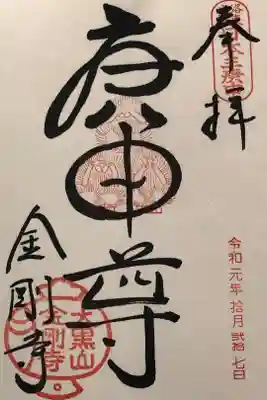 奉拝
庚申尊
金剛寺
大黒山
金剛寺
令和元年拾月貮拾七日